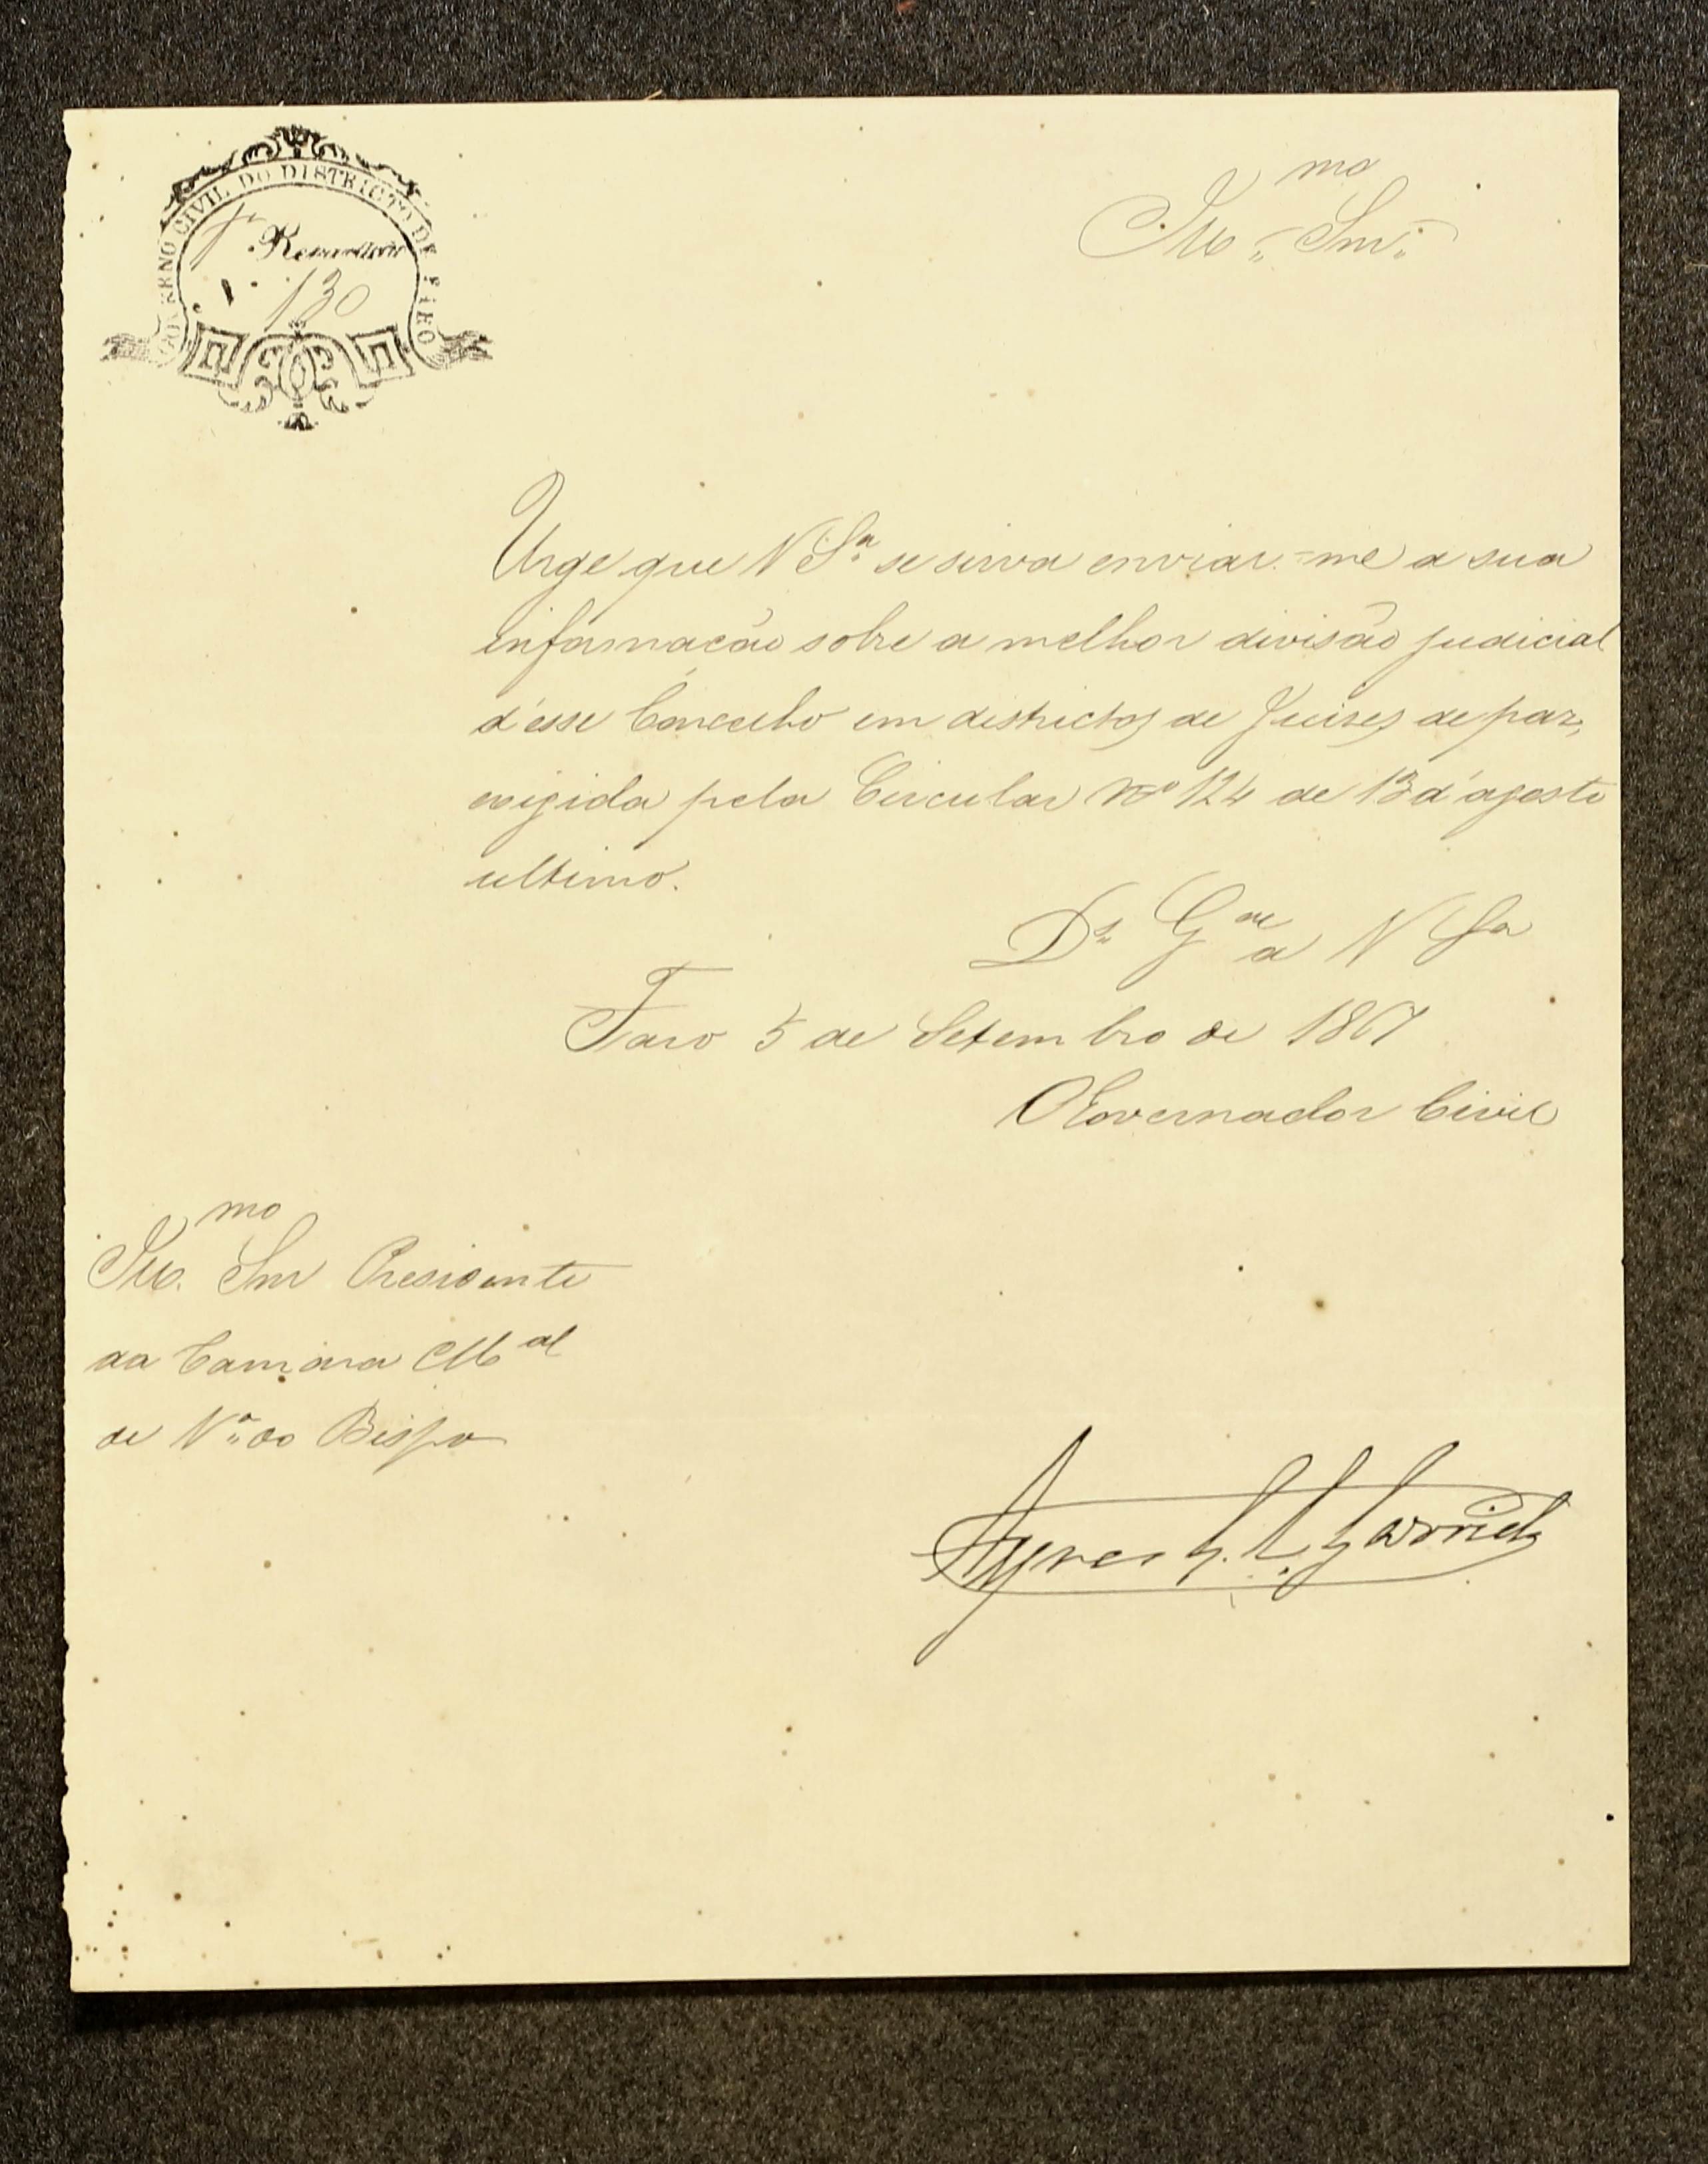 GOVERNO CIVIL DO DISTRICTO DE FARO
1ª Repartição
N.º 130
Illmo Snr.
Urge que V Sª se sirva enviar-me a sua
informação sobre a melhor divisão judicial
d'esse Concelho em districtos de Juizes de paz,
exigida pela Circular nº 124 de 13 d'agosto
ultimo.
Ds Gde a V Sa
Faro 5 de Setembro de 1867
O Governador Civil
Illmo Snr Presidente
da Camara Mal
de Vª do Bispo